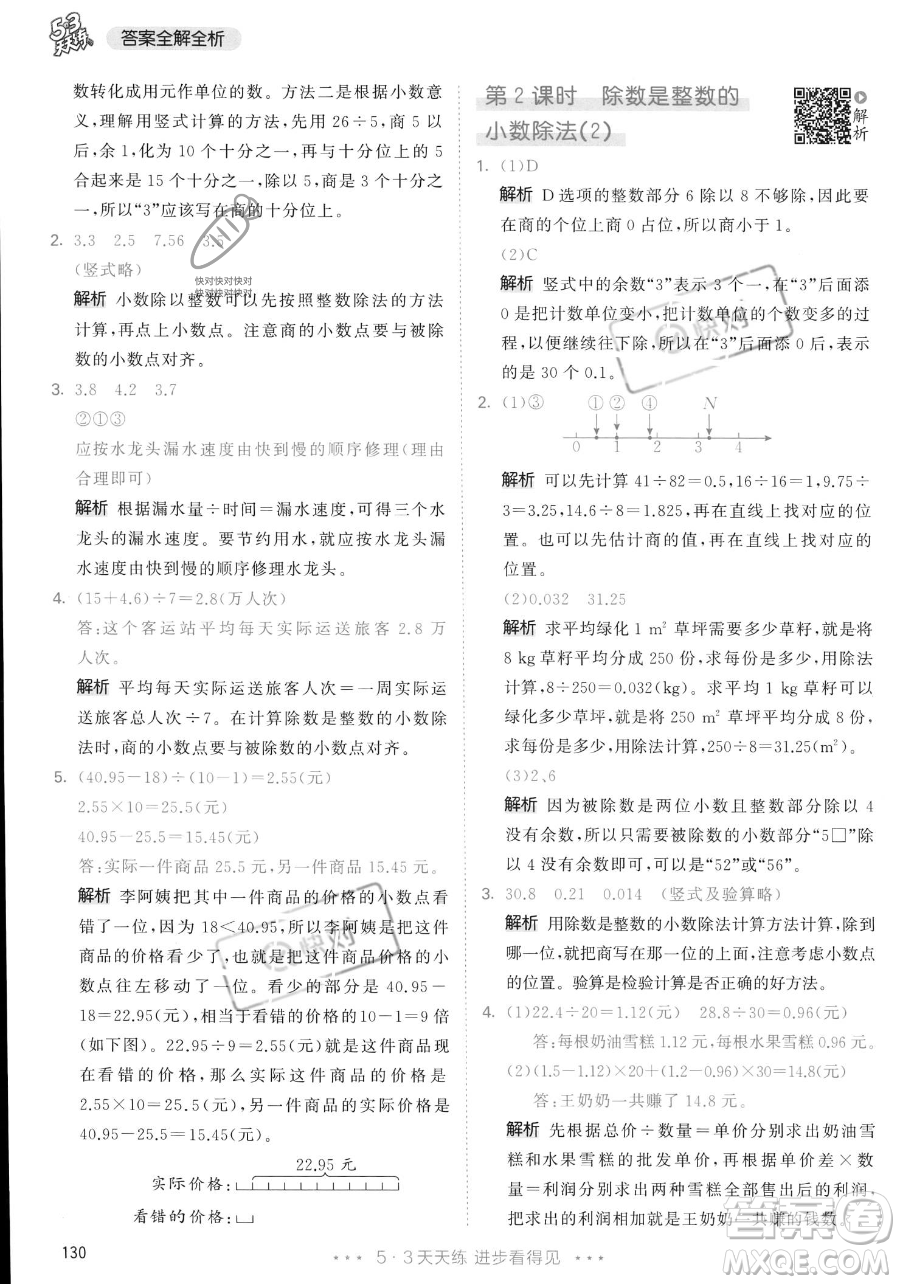 5·3
天天练
答案全解全析
数转化成用元作单位的数。方法二是根据小数意
义,理解用竖式计算的方法。先用 26÷5,商 5 余
1,化为 10 个十分之一,再与十分位上的 5
合起来是 15 个十分之一,除以 5,商是 3 个十分之
一,所以“3”应该写在商的十分位上。
2. 3.3 2.5 7.56 3.5
(竖式略)
快对快对快对
快对快对快对
解析 小数除以整数可以先按照整数除法的方法
计算,再点上小数点。注意商的小数点要与被除
数的小数点对齐。
3. 3.8 4.2 3.7
②①③
应按水龙头漏水速度由快到慢的顺序修理(理由
合理即可)
解析 根据漏水量÷时间=漏水速度,求出三个水
龙头的漏水速度。要节约用水,就要按水龙头漏
水速度由快到慢的顺序修理水龙头。
4. (15+4.6)÷7=2.8(万人次)
答:这个客运站平均每天实际运送旅客 2.8 万
人次。
解析 平均每天实际运送旅客人次=一周实际运
送旅客总人次÷7。在计算除数是整数的小数除
法时,商的小数点要与被除数的小数点对齐。
5. (40.95-18)÷(10-1)=2.55(元)
2.55×10=25.5(元)
40.95-25.5=15.45(元)
答:实际一件商品 25.5 元,另一件商品 15.45 元。
解析 李阿姨把其中一件商品的价格的小数点看
错了一位,因为 18<40.95,所以李阿姨是把这件
商品的价格看少了,也就是把这件商品价格的小
数点往左移动了一位。所以少看了 40.95-
18=22.95(元),相当于看错的价格的 10-1=9 倍
(如下图)。22.95÷9=2.55(元),所以看错的价
格是 2.55 元,那么实际这件商品的价格是
2.55×10=25.5(元),另一件商品的价格是
40.95-25.5=15.45(元)。
22.95 元
实际价格:
看错的价格:
第 2 课时 除数是整数的
小数除法(2)
解析
1. (1)D
解析 D 选项的整数部分 6 除以 8 不够除,所以要
在商的个位上商 0 占位,所以商小于 1。
(2)C
解析 竖式中的余数“3”表示 3 个一,在“3”后面添
0 是把计数单位变小,把计数单位的个数变多的过
程,以便继续往下除,所以在“3”后面添 0,表示的
是 30 个 0.1。
2. (1)③ ① ② ④ N
0 1 2 3 4
解析 可以先计算 41÷82=0.5,16÷16=1,9.75÷
3=3.25,14.6÷8=1.825,再在直线上找对应的位
置。也可以先估计商的值,再在直线上找对应的
位置。
(2)0.032 31.25
解析 求平均绿化 1 m² 草坪需要多少草籽,就是将
8 kg 草籽平均分成 250 份,求每份是多少,用除法
计算,8÷250=0.032(kg)。求平均 1 kg 草籽可以
绿化多少草坪,就是将 250 m² 草坪平均分成 8 份,
求每份是多少,用除法计算,250÷8=31.25(m²)。
(3)2,6
解析 因为被除数是两位小数且整数部分除以 4
没有余数,所以只需要被除数的小数部分“5□”除
以 4 没有余数即可,可以是“52”或“56”。
3. 30.8 0.21 0.014 (竖式及验算略)
解析 用除数是整数的小数除法计算方法计算,除到
哪一位,就把商写在那一位的上面,注意考虑小数点
的位置。验算是检验计算是否正确的好方法。
4. (1)22.4÷20=1.12(元) 28.8÷30=0.96(元)
答:每根奶油雪糕 1.12 元,每根水果雪糕 0.96 元。
(2)(1.5-1.12)×20+(1.2-0.96)×30=14.8(元)
答:王奶奶一共赚了 14.8 元。
解析 先根据总价÷数量=单价分别求出奶油雪
糕和水果雪糕的批发单价,再根据单价差×数
量=利润分别求出两种雪糕全部售出后的利润,
最后把利润相加,就是王奶奶一共赚的钱数。
130
5·3 天天练 进步看得见